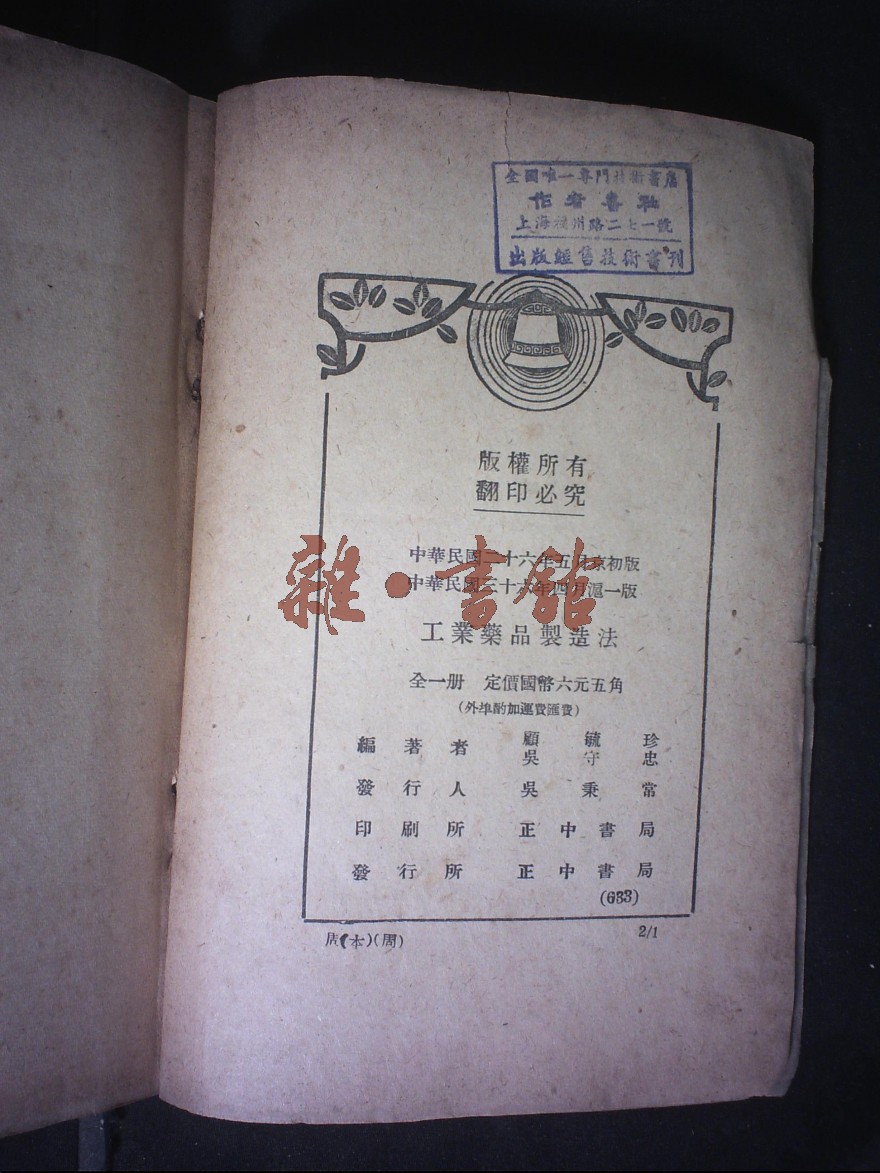 全國唯一專門技術書店
作者書社
上海福州路二七一號
出版經售技術書刊
版權所有
翻印必究
中華民國二十六年五月京初版
中華民國三十六年四月滬一版
雜·書館
工業藥品製造法
全一册 定價國幣六元五角
(外埠酌加運費匯費)
編著者 顧毓珍
吳守忠
發行人 吳秉常
印刷所 正中書局
發行所 正中書局
(683)
(本)(周)
2/1